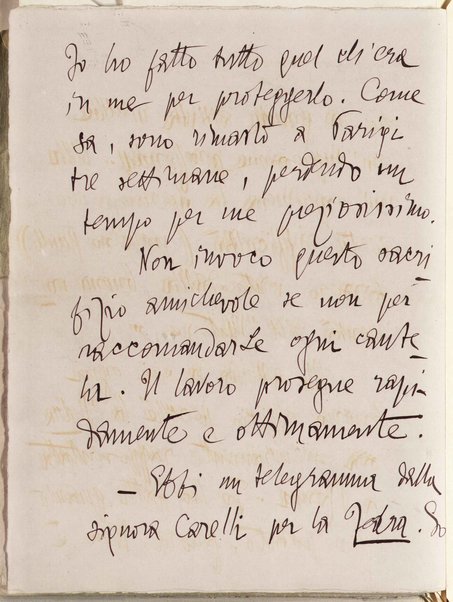 Io ho fatto tutto quel ch'era
in me per proteggerlo. Come
sa, sono rimasto a Parigi
tre settimane, perdendo un
tempo per me preziosissimo.
Non invoco questo sacri
fizio amichevole se non per
raccomandarLe ogni caute-
la. Il lavoro prosegue rapi-
damente e ottimamente.
— Ebbi un telegramma dalla
signora Carelli per la Fedra. Io